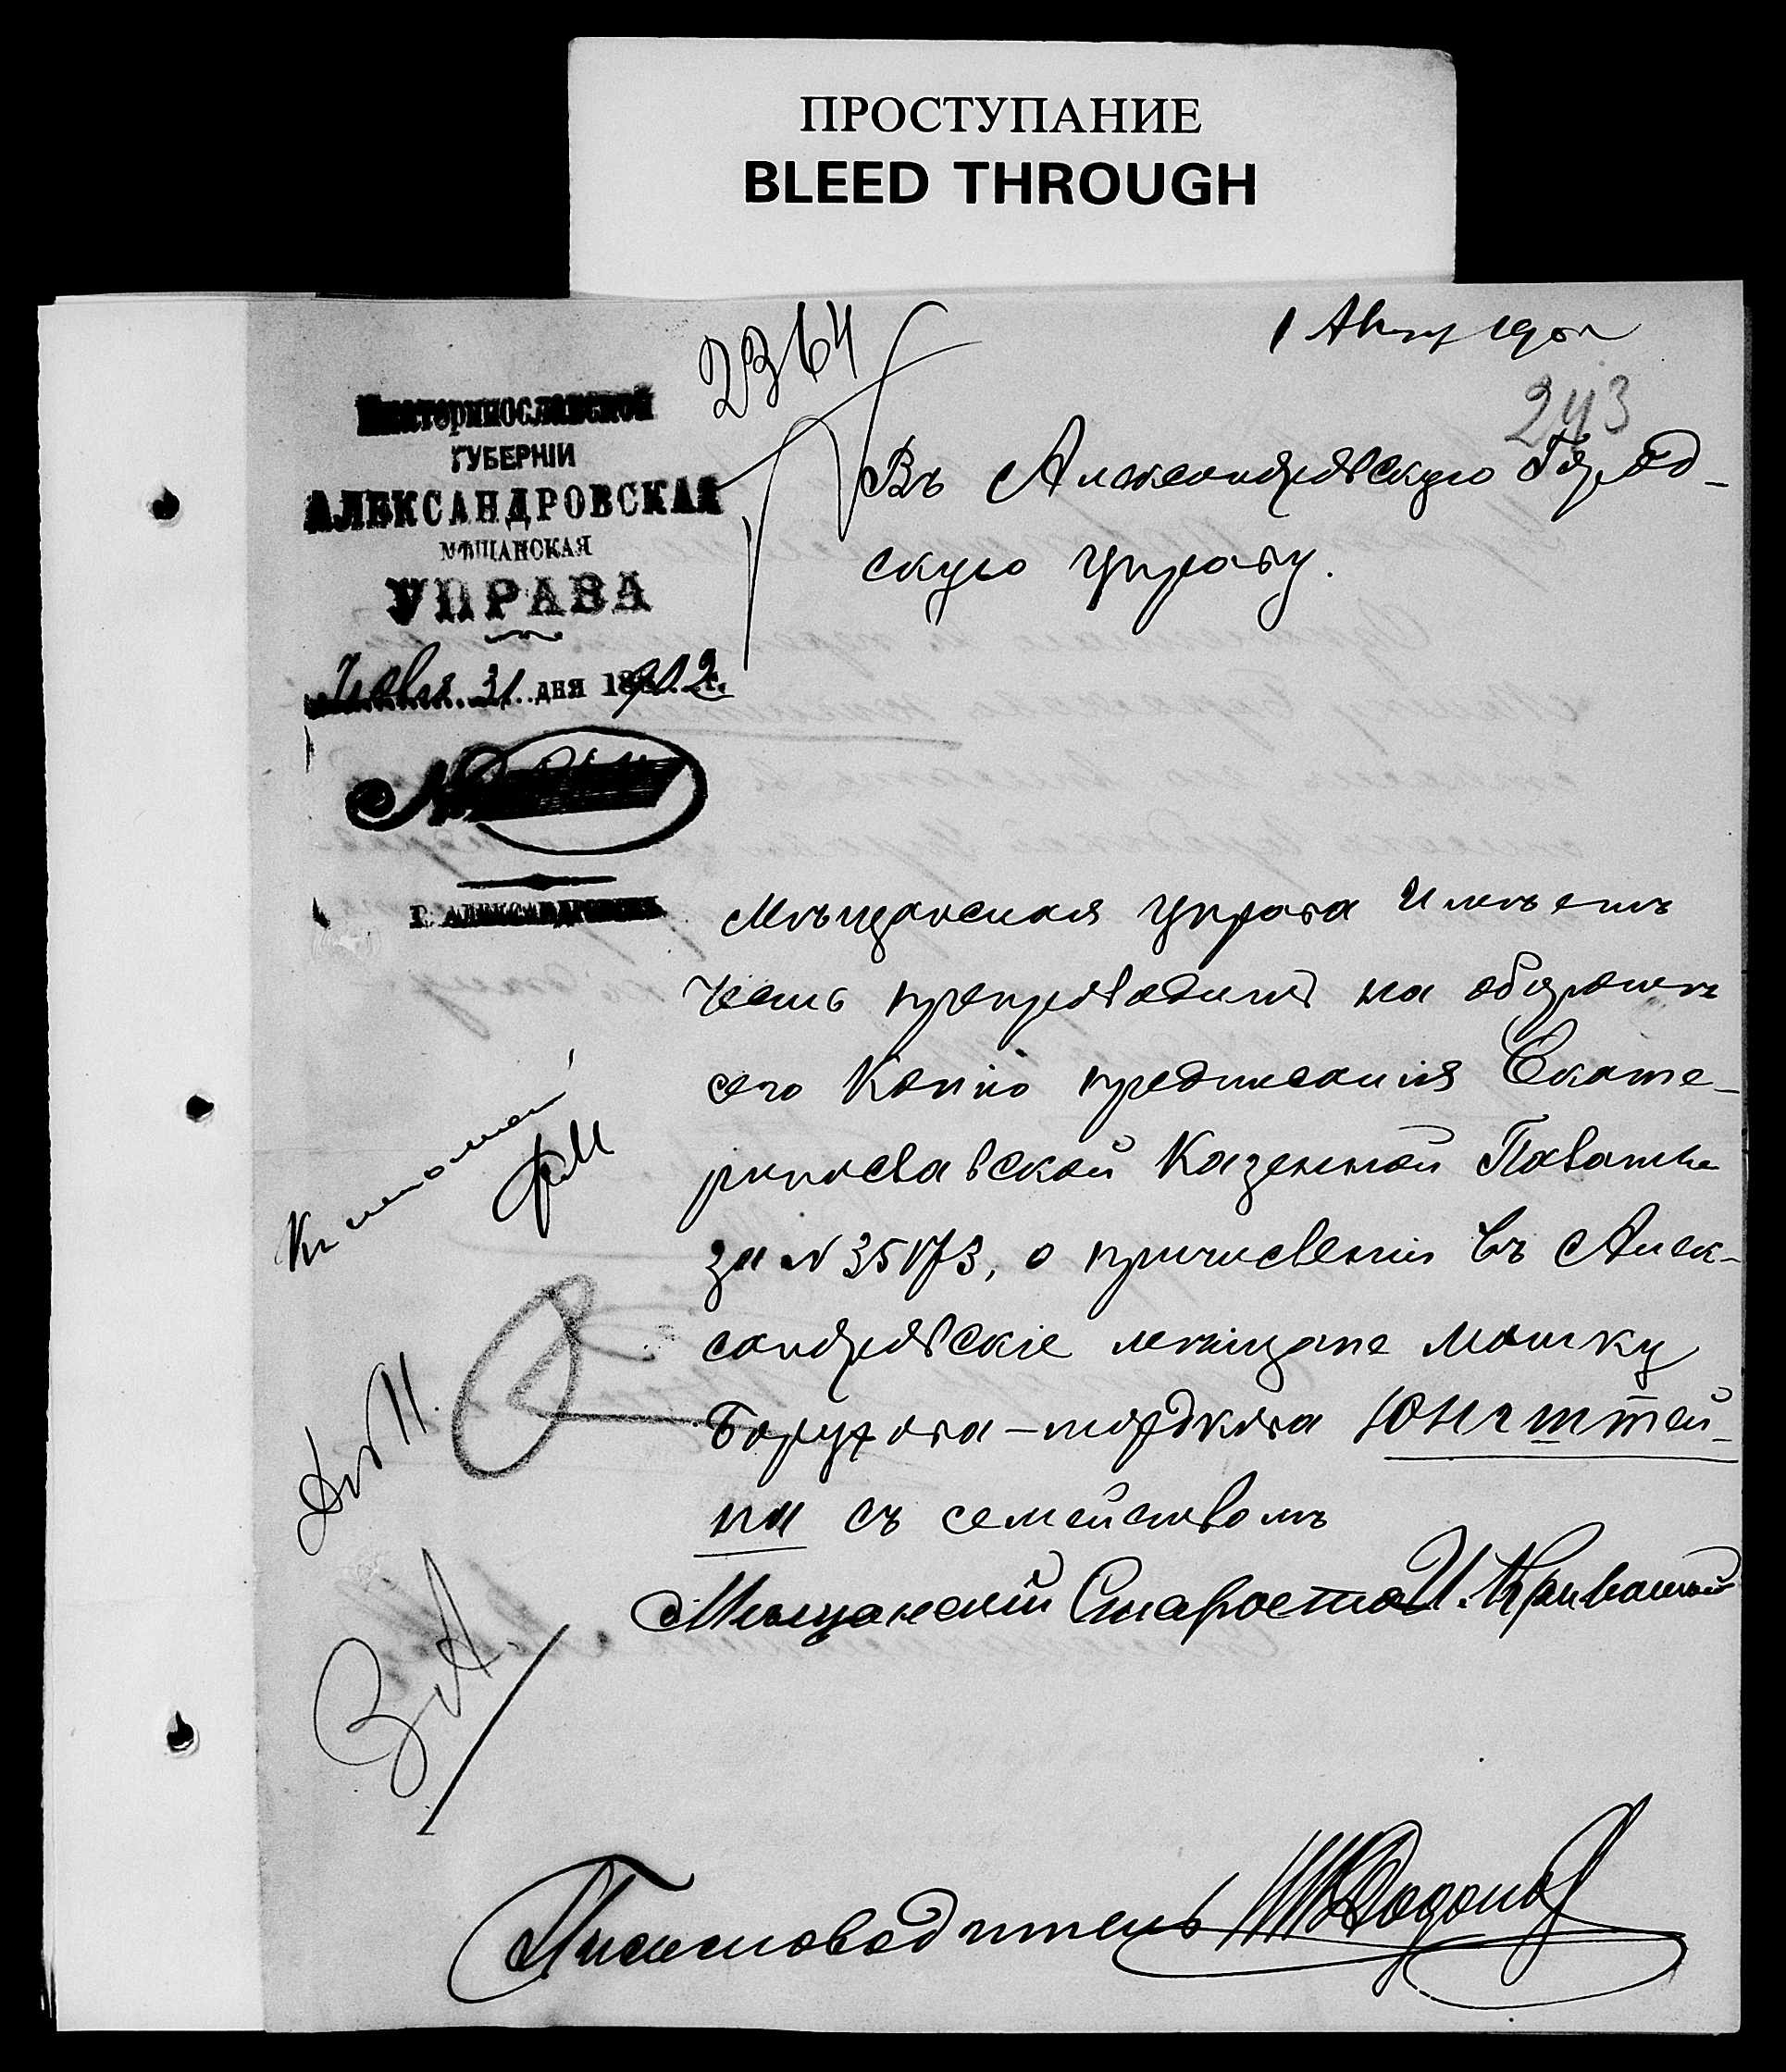 ПРОСТУПАНИЕ
BLEED THROUGH
2364
1 Авг 1902
243
Екатеринославской
ГУБЕРНІИ
АЛЕКСАНДРОВСКАЯ
МѢЩАНСКАЯ
УПРАВА
Іюля 31 дня 1902 г.
№
Г. АЛЕКСАНДРОВСКЪ
Въ Александровскую Город-
скую Управу.
Мѣщанская Управа имѣетъ
честь препроводить на оборотѣ
сего Копію предписанія Екате-
ринославской Казенной Палаты
за № 35173, о причисленіи въ Алек-
сандровскіе мѣщане Мошку
Борухова-Мордкова Юнгштей-
на съ семействомъ
Мѣщанскій Староста И.
Письмоводитель